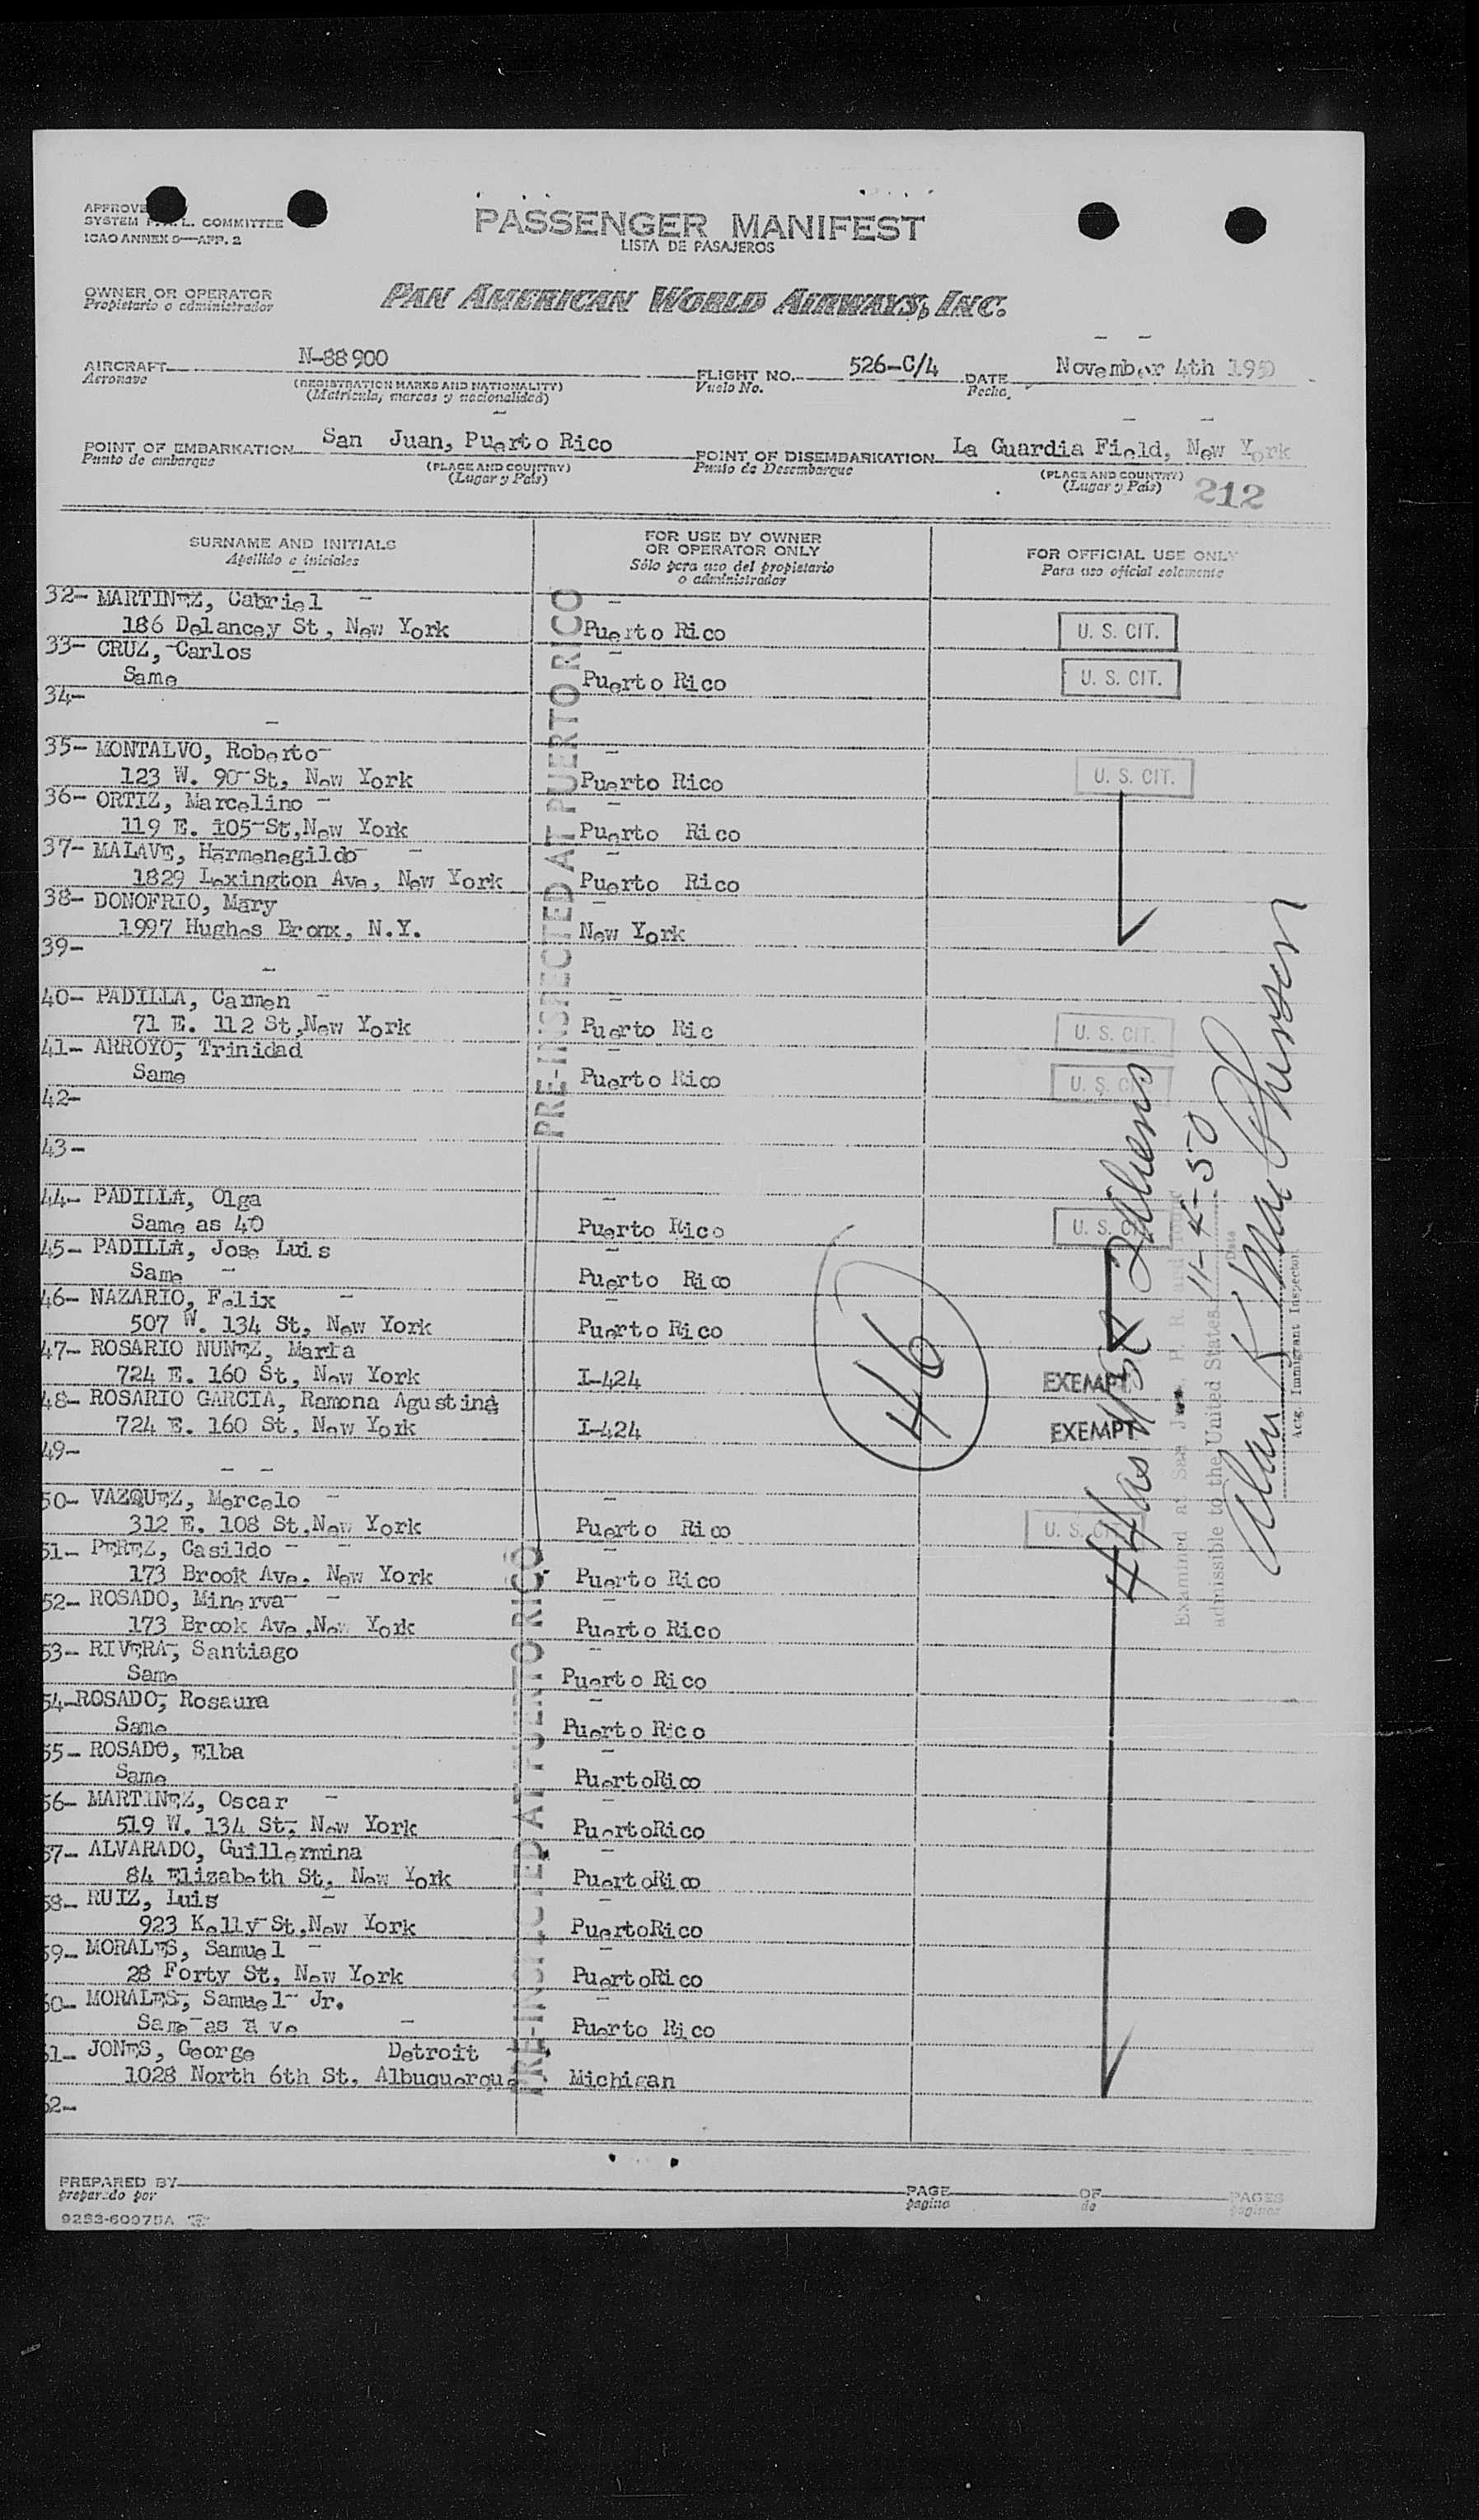 PASSENGER MANIFEST
LISTA DE PASAJEROS
SYSTEM COMMITTEE
ICAO ANNEX 9—APP. 2
OWNER OR OPERATOR
Propietario o administrador
PAN AMERICAN WORLD AIRWAYS, INC.
AIRCRAFT N-88900 FLIGHT NO. 526-C/4 DATE November 4th 1950
Aeronave (REGISTRATION MARKS AND NATIONALITY) Vuelo No. Fecha
(Matricula, marcas y nacionalidad)
POINT OF EMBARKATION San Juan, Puerto Rico POINT OF DISEMBARKATION La Guardia Field, New York
Punto de embarque (PLACE AND COUNTRY) Punto de Desembarque (PLACE AND COUNTRY)
(Lugar y País) (Lugar y País) 212
SURNAME AND INITIALS FOR USE BY OWNER OR OPERATOR ONLY FOR OFFICIAL USE ONLY
Apellido e iniciales Sólo para uso del propietario o administrador Para uso oficial solamente
PRE-INSPECTED AT PUERTO RICO
32- MARTINEZ, Gabriel
186 Delancey St, New York Puerto Rico U. S. CIT.
33- CRUZ, Carlos
Same Puerto Rico U. S. CIT.
34-
35- MONTALVO, Roberto
123 W. 90 St, New York Puerto Rico U. S. CIT.
36- ORTIZ, Marcelino
119 E. 105 St, New York Puerto Rico
37- MALAVE, Hermenegildo
1829 Lexington Ave, New York Puerto Rico
38- DONOFRIO, Mary
1997 Hughes Bronx, N.Y. New York
39-
40- PADILLA, Carmen
71 E. 112 St, New York Puerto Ric U. S. CIT.
41- ARROYO, Trinidad
Same Puerto Rico U. S. CIT.
42-
43-
44- PADILLA, Olga
Same as 40 Puerto Rico U. S. CIT.
45- PADILLA, Jose Luis
Same Puerto Rico
46- NAZARIO, Felix
507 W. 134 St, New York Puerto Rico
47- ROSARIO NUNEZ, Maria
724 E. 160 St, New York I-424 EXEMPT
48- ROSARIO GARCIA, Ramona Agustina
724 E. 160 St, New York I-424 EXEMPT
49-
50- VAZQUEZ, Mercelo
312 E. 108 St, New York Puerto Rico U. S. CIT.
51- PEREZ, Casildo
173 Brook Ave. New York Puerto Rico
52- ROSADO, Minerva
173 Brook Ave, New York Puerto Rico
53- RIVERA, Santiago
Same Puerto Rico
54-ROSADO, Rosaura
Same Puerto Rico
55- ROSADO, Elba
Same PuertoRico
56- MARTINEZ, Oscar
519 W. 134 St, New York PuertoRico
57- ALVARADO, Guillermina
84 Elizabeth St, New York PuertoRico
58- RUIZ, Luis
923 Kelly St, New York PuertoRico
59- MORALES, Samuel
28 Forty St, New York PuertoRico
60- MORALES, Samuel Jr.
Same as Puerto Rico
61- JONES, George Detroit
1028 North 6th St, Albuquerque Michigan
62-
PRE-INSPECTED AT PUERTO RICO
46
44 USC 2 Aliens
Examined at San Juan, P. R. and
admissible to the United States 11-4-50
Date
Alan K
Actg. Immigrant Inspector
PREPARED BY PAGE OF PAGES
preparado por página de páginas